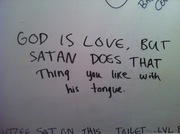 GOD IS LOVE, BUT
SATAN DOES THAT
Thing you like with
his tongue.
SAT ON THIS TOILET